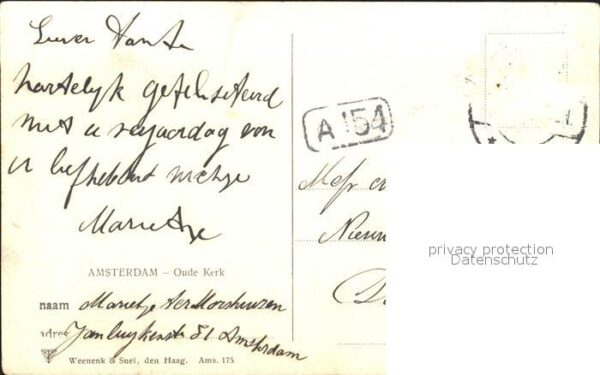 Lieve Tante
hartelyk gefeliseteerd
met u verjaardag van
u liefhebent nichtje
Marietje
AMSTERDAM – Oude Kerk
naam Marietje
adres Jan Luykenstr 81 Amsterdam
Weenenk & Snel, den Haag. Ams. 175
A 154
Mej
Nieuw
D
privacy protection
Datenschutz